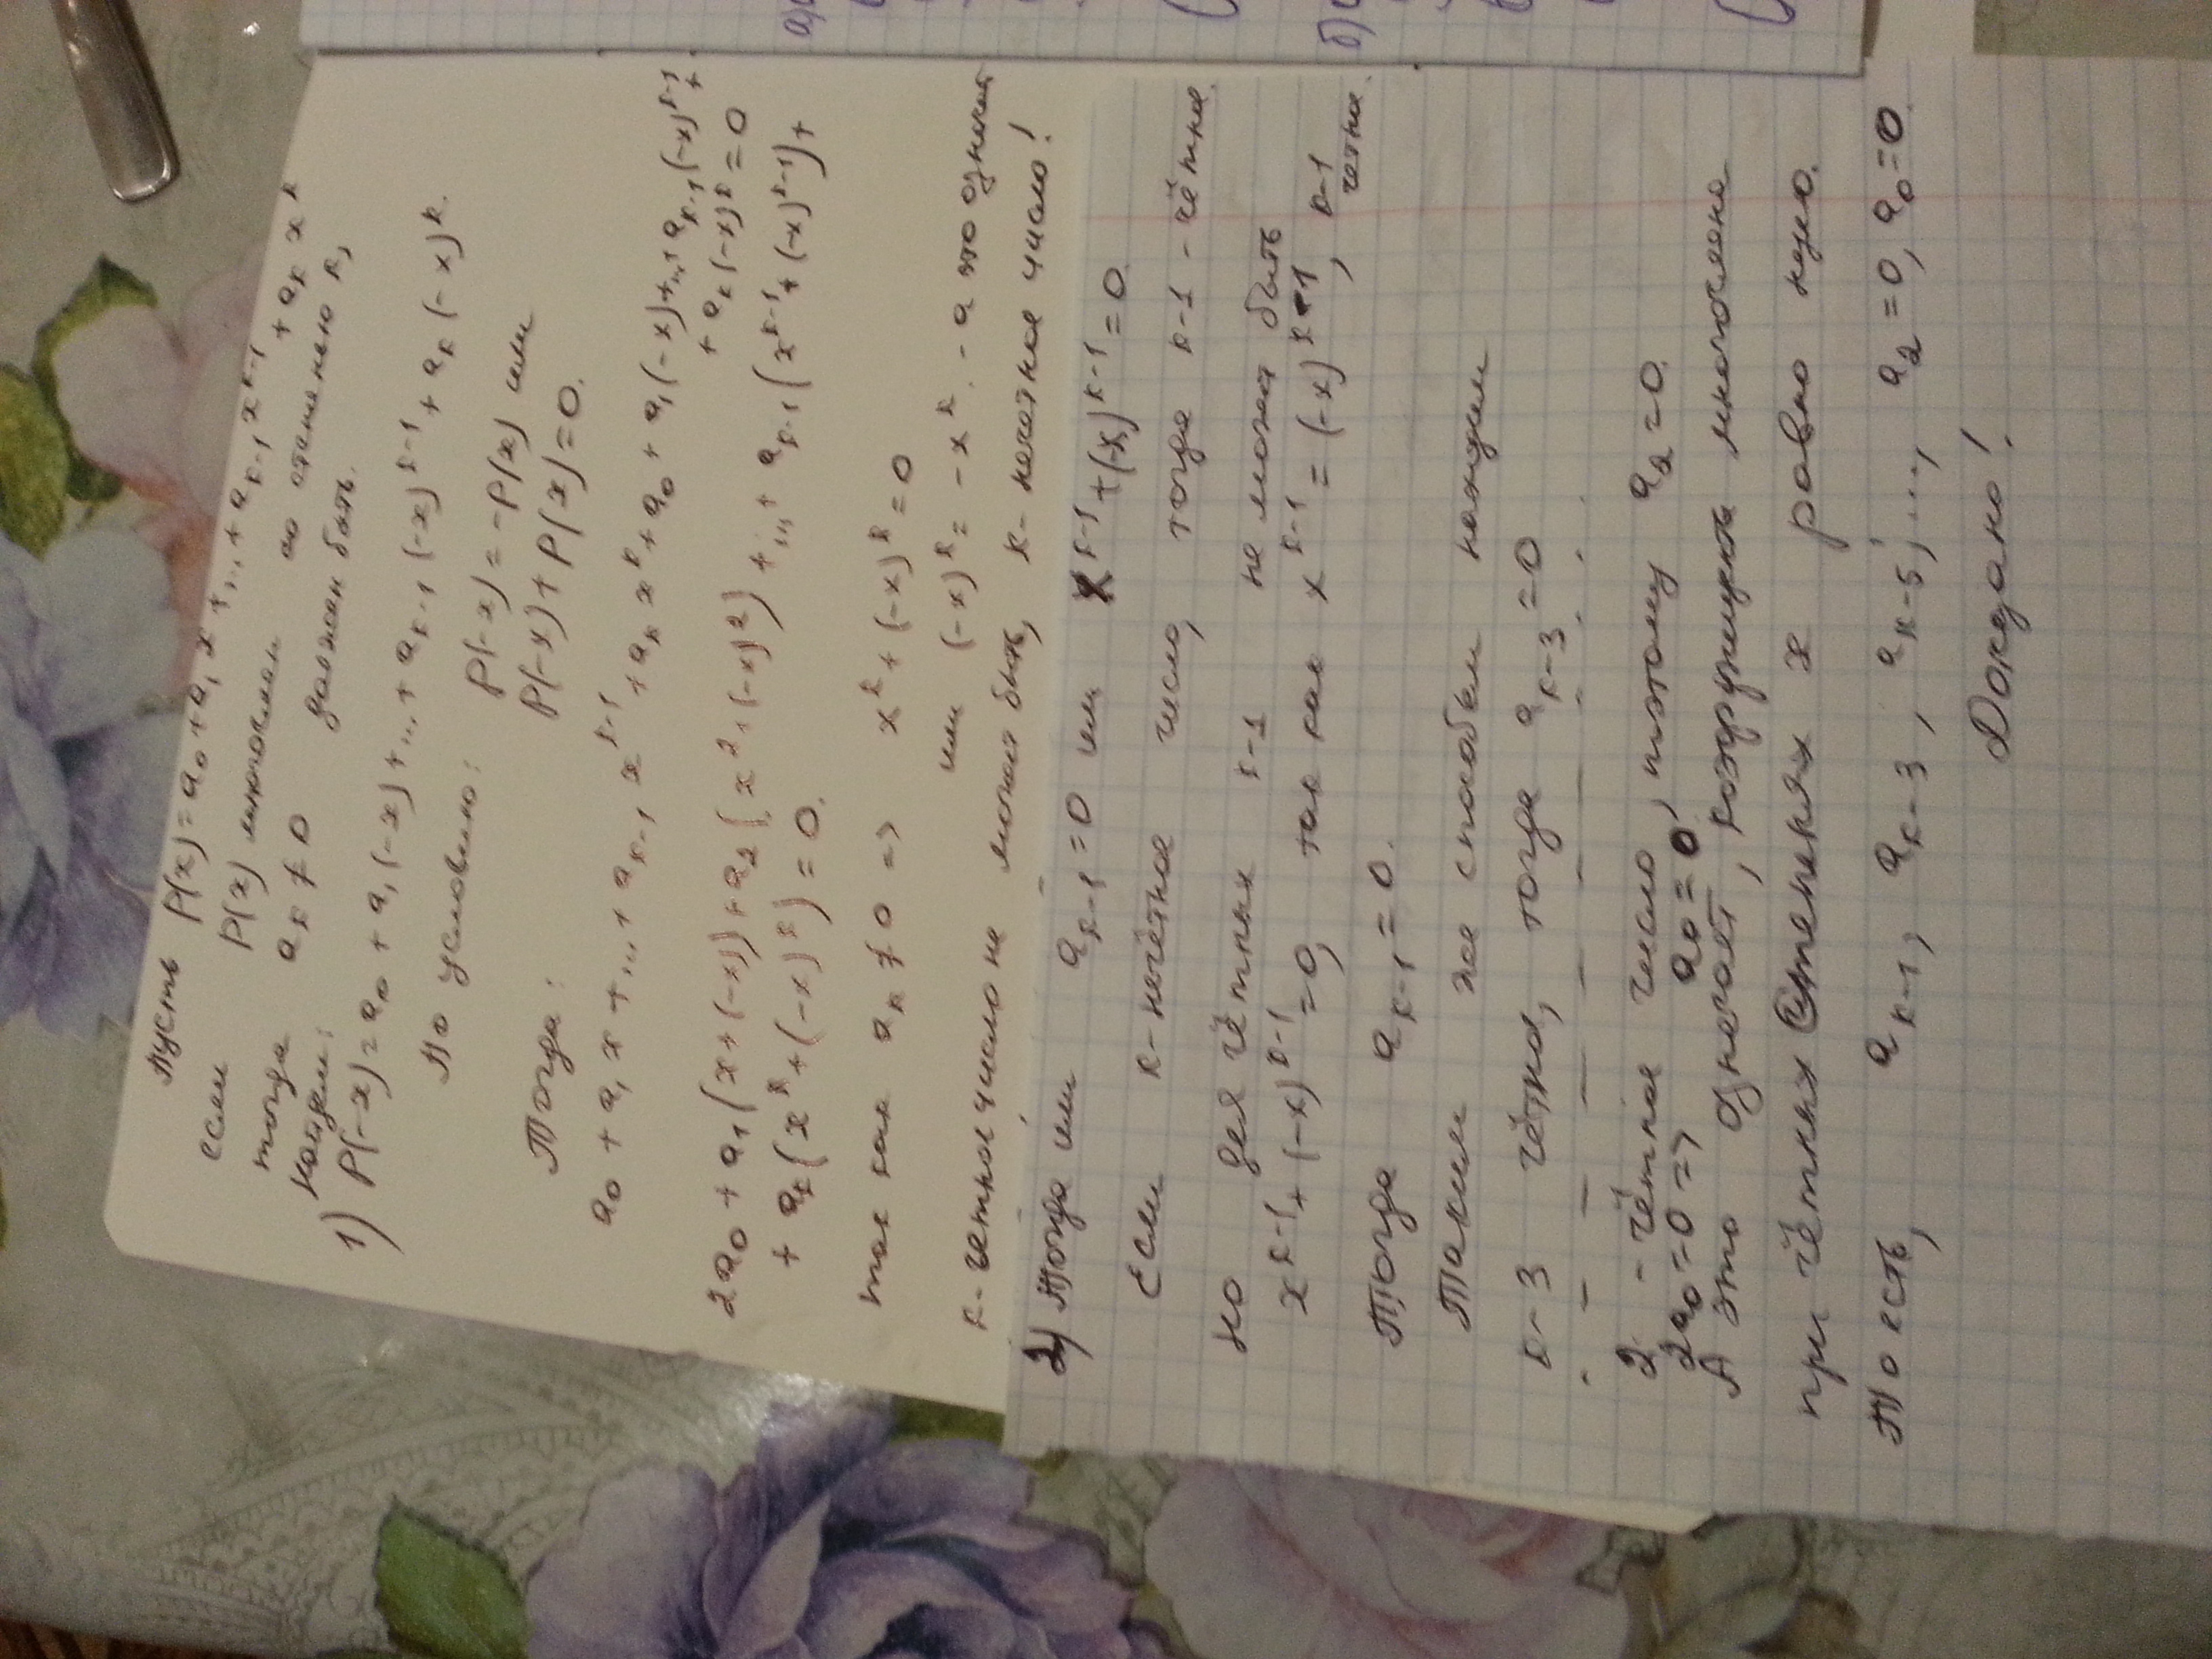 Пусть P(x) = a₀ + a₁x + ... + aₖ₋₁xᵏ⁻¹ + aₖxᵏ
если P(x) многочлен со степенью k,
тогда aₖ ≠ 0 должен быть.
Найдем:
1) P(-x) = a₀ + a₁(-x) + ... + aₖ₋₁(-x)ᵏ⁻¹ + aₖ(-x)ᵏ.
По условию: P(-x) = -P(x) или
P(-x) + P(x) = 0.
Тогда:
a₀ + a₁x + ... + aₖ₋₁xᵏ⁻¹ + aₖxᵏ + a₀ + a₁(-x) + ... + aₖ₋₁(-x)ᵏ⁻¹ +
+ aₖ(-x)ᵏ = 0
2a₀ + a₁(x + (-x)) + a₂(x² + (-x)²) + ... + aₖ₋₁(xᵏ⁻¹ + (-x)ᵏ⁻¹) +
+ aₖ(xᵏ + (-x)ᵏ) = 0.
так как aₖ ≠ 0 => xᵏ + (-x)ᵏ = 0
или (-x)ᵏ = -xᵏ. - а это означает
k-четное число не может быть, k-нечетное число!
2) Тогда или aₖ₋₁ = 0 или xᵏ⁻¹ + (-x)ᵏ⁻¹ = 0.
Если k-нечётное число, тогда k-1 - чётное.
Но для чётных k-1 не может быть
xᵏ⁻¹ + (-x)ᵏ⁻¹ = 0, так как xᵏ⁻¹ = (-x)ᵏ⁻¹, k-1 четное.
Тогда aₖ₋₁ = 0.
Таким же способом находим
k-3 чётно, тогда aₖ₋₃ = 0
2 - чётное число, поэтому a₂ = 0.
2a₀ = 0 => a₀ = 0
А это означает, коэффициенты многочлена
при чётных степенях x равно нулю.
То есть, aₖ₋₁, aₖ₋₃, aₖ₋₅, ..., a₂ = 0, a₀ = 0.
Доказано!
а)
б)